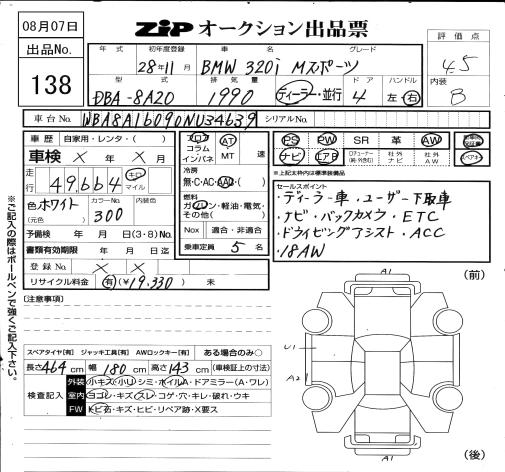 08月07日
ZIP オークション出品票
出品No.
138
評価点
4.5
内装
B
年式 初年度登録 車名 グレード
28年11月 BMW 320i Mスポーツ
型式 排気量 ドア ハンドル
DBA-8A20 1990 ディーラー・並行 4 左・右
車台No. WBA8A16090NU34639 シリアルNo.
車歴 自家用・レンタ・( )
車検 × 年 × 月
走行 49,664 キロ マイル
色 ホワイト (元色) カラーNo. 300 内装色
予備検 年 月 日(3・8)No.
書類有効期限 年 月 日迄
登録No. × ×
リサイクル料金 有(¥19,330) 未
フロア コラム インパネ AT MT 速
冷房 無・C・AC・AAC
燃料 ガソリン・軽油・電気・その他( )
Nox 適合・非適合
乗車定員 5 名
PS PW SR 革 AW
ナビ エアB 社外ナビ 社外AW
※上記太枠内は標準装備品
セールスポイント
・ディーラー車・ユーザー下取車
・ナビ・バックカメラ・ETC
・ドライビングアシスト・ACC
・18AW
[注意事項]
スペアタイヤ[有] ジャッキ工具[有] AWロックキー[有] ある場合のみ○
長さ 464 cm 幅 180 cm 高さ 143 cm (車検証上の寸法)
検査記入
外装 小キズ・小リ・シミ・ホイルA・ドアミラー(A・ワレ)
室内 ヨゴレ・キズ・スレ・コゲ・穴・キレ・破れ・ウキ
FW トビ石・キズ・ヒビ・リペア跡・X要ス
※ご記入の際はボールペンで強くご記入下さい。
A1
(前)
U1
A2
A1
(後)